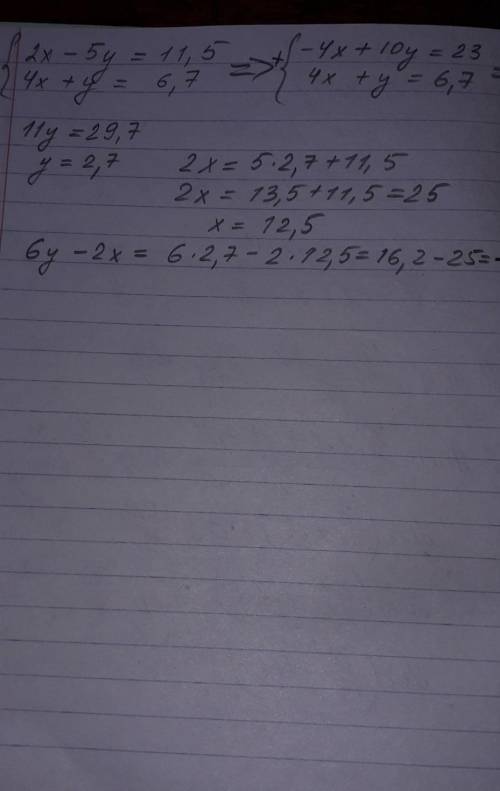 { 2x − 5y = 11,5 => + { −4x + 10y = 23 =
4x + y = 6,7 4x + y = 6,7
11y = 29,7
y = 2,7 2x = 5·2,7 + 11,5
2x = 13,5 + 11,5 = 25
x = 12,5
6y − 2x = 6·2,7 − 2·12,5 = 16,2 − 25 = -